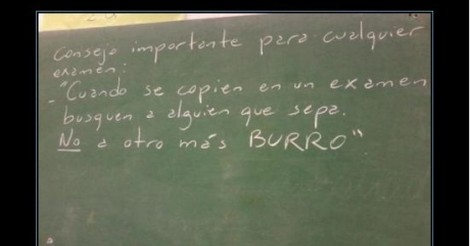 Consejo importante para cualquier
examen:
- "Cuando se copien en un examen
busquen a alguien que sepa.
No a otro más BURRO"